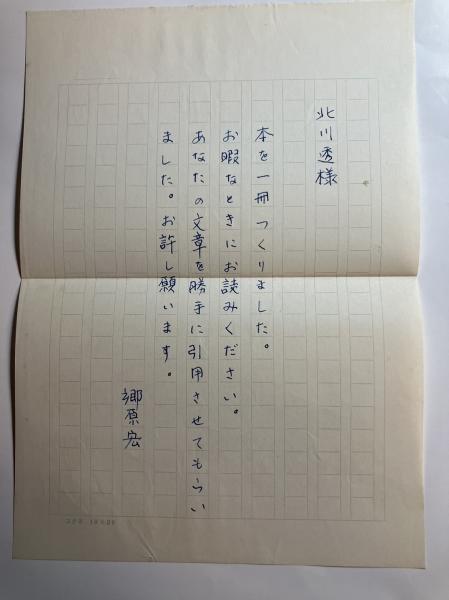 北川透様
本を一冊つくりました。
お暇なときにお読みください。
あなたの文章を勝手に引用させてもらい
ました。お許し願います。
郷原宏
コクヨ